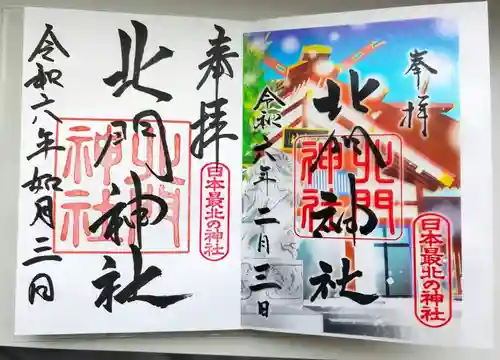 奉拝
北門神社
北門神社
日本最北の神社
令和六年如月三日
奉拝
北門神社
北門神社
日本最北の神社
令和六年二月三日